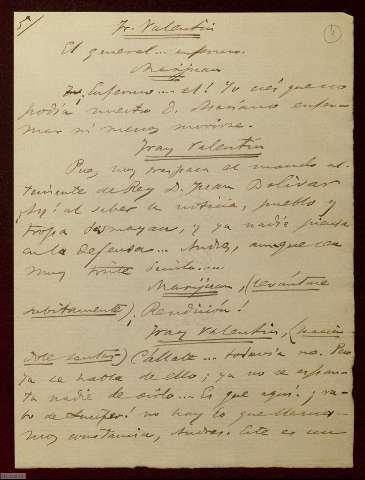 5ª
Fr. Valentin
El general... enfermo.
Marijuan
¡Enfermo... él! Yo creí que no
podía nuestro D. Mariano enfer-
mar ni menos morirse.
Fray Valentín
Pues, hoy traspasa el mando al
teniente de Rey D. Juan Bolívar
¡Ay! al saber la noticia, pueblo y
tropa desmayan, y ya nadie piensa
en la defensa... Andres, aunque sea
muy triste decirlo....
Marijuan, (levántase
súbitamente) ¡Rendición!
Fray Valentin, (hacien
dole sentar) Cállate... todavía no. Pero
ya se habla de ello; ya no se espan-
ta nadie de oirlo... Es que aquí ¡ra-
bo de Lucifer! no hay lo que llama-
mos constancia, Andres. Este es un